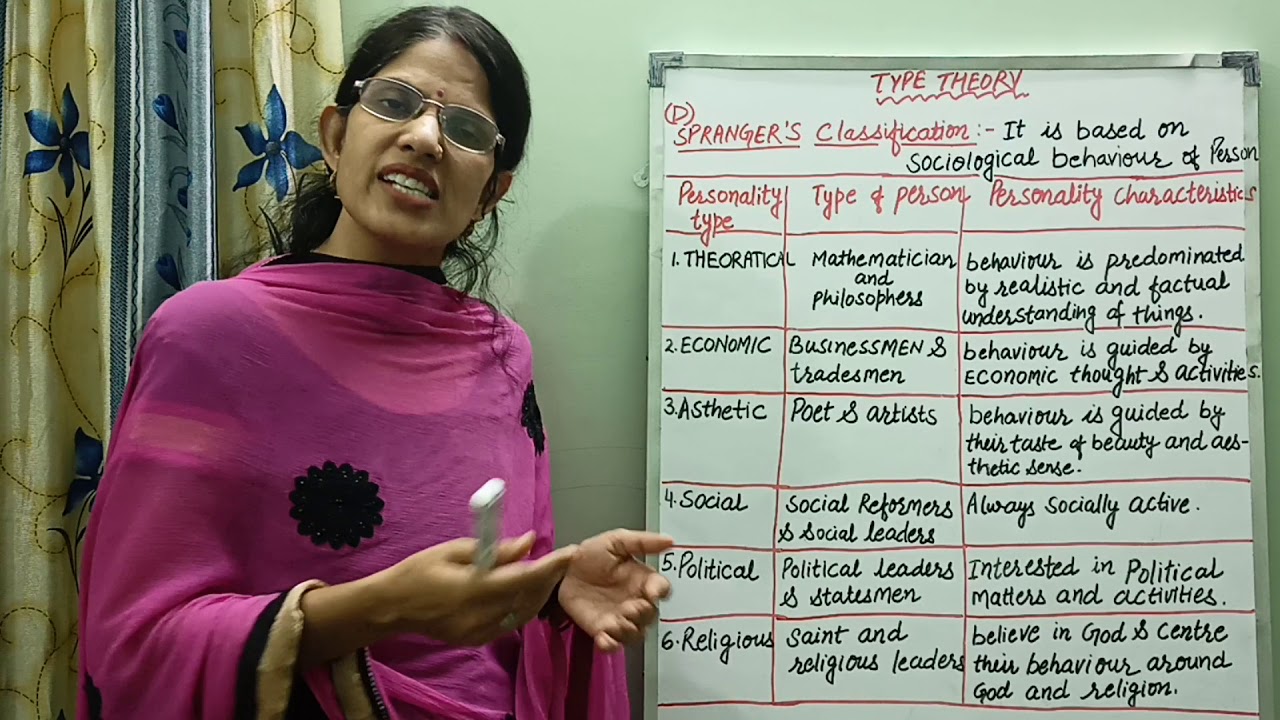 TYPE THEORY
(D)
SPRANGER'S Classification:- It is based on
Sociological behaviour of Person
Personality type
Type of person
Personality Characteristics
1. THEORATICAL
Mathematician
and
philosophers
behaviour is predominated
by realistic and factual
understanding of things.
2. ECONOMIC
BusinessMEN &
tradesmen
behaviour is guided by
ECONOMIC thought & activities.
3. Asthetic
Poet & artists
behaviour is guided by
their taste of beauty and aes-
thetic sense.
4. Social
Social Reformers
& Social leaders
Always Socially active.
5. Political
Political leaders
& statesmen
Interested in Political
Matters and activities.
6. Religious
Saint and
religious leaders
believe in God & Centre
their behaviour around
God and religion.